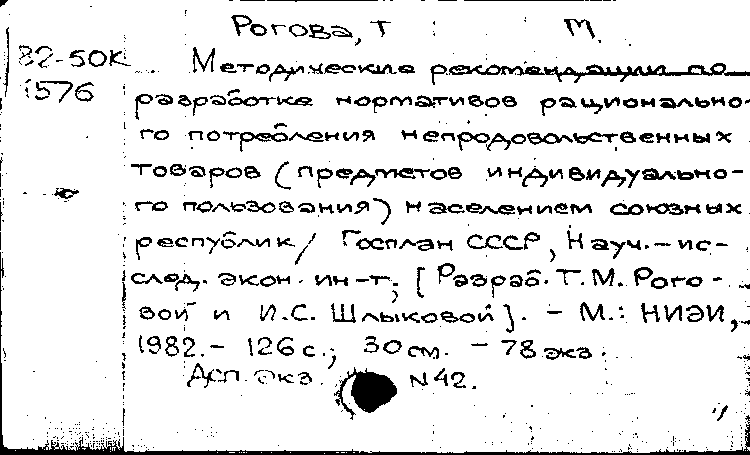 Рогова, Т М.
82-50К
1576
Методические рекомендации по
разработке нормативов рационально-
го потребления непродовольственных
товаров (предметов индивидуально-
го пользования) населением союзных
республик / Госплан СССР, Науч.-ис-
след. экон. ин-т; [Разраб. Т.М. Рого-
вой и И.С. Шлыковой]. - М.: НИЭИ,
1982. - 126 с.; 30 см. - 78 экз.
Дсп. экз. N 42.